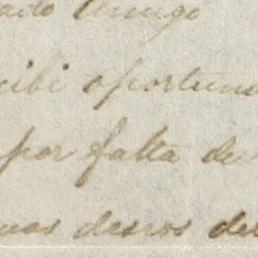 ado Amigo
cibi oportuna
por falta de
uas deseos del